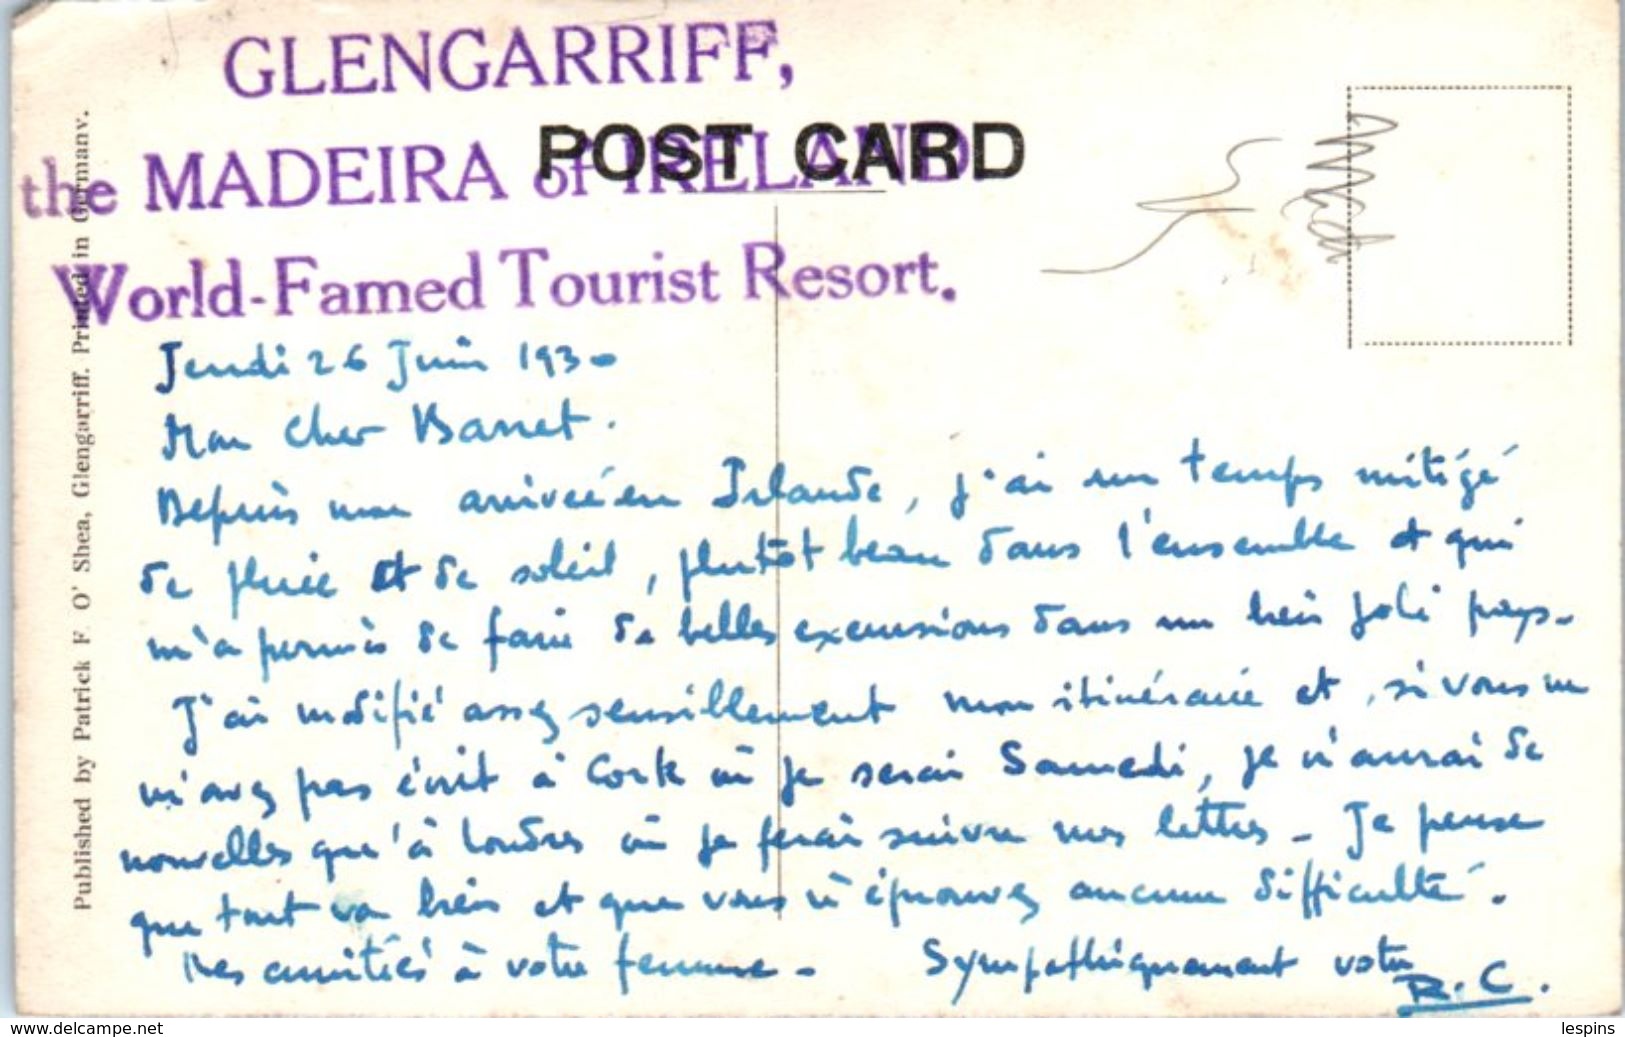 GLENGARRIFF,
the MADEIRA of IRELAND.
World-Famed Tourist Resort.
POST CARD
Published by Patrick F. O' Shea, Glengarriff. Printed in Germany.
Jeudi 26 Juin 1930
Mon cher Barret.
Depuis mon arrivée en Irlande, j'ai un temps mitigé
de pluie et de soleil, plutôt beau dans l'ensemble et qui
m'a permis de faire de belles excursions dans un bien joli pays-
J'ai modifié assez sensiblement mon itinéraire et, si vous ne
m'avez pas écrit à Cork où je serai Samedi, je n'aurai de
nouvelles qu'à Londres où je ferai suivre mes lettres - Je pense
que tout va bien et que vous n'éprouvez aucune difficulté.
Mes amitiés à votre femme - Sympathiquement votre
R.C.
www.delcampe.net
lespins